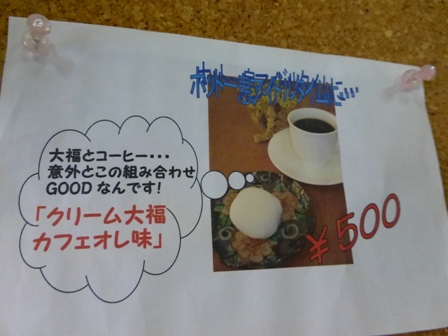 ホット一息アイドルタイムに…
大福とコーヒー・・・
意外とこの組み合わせ
GOODなんです!
「クリーム大福
カフェオレ味」
¥500